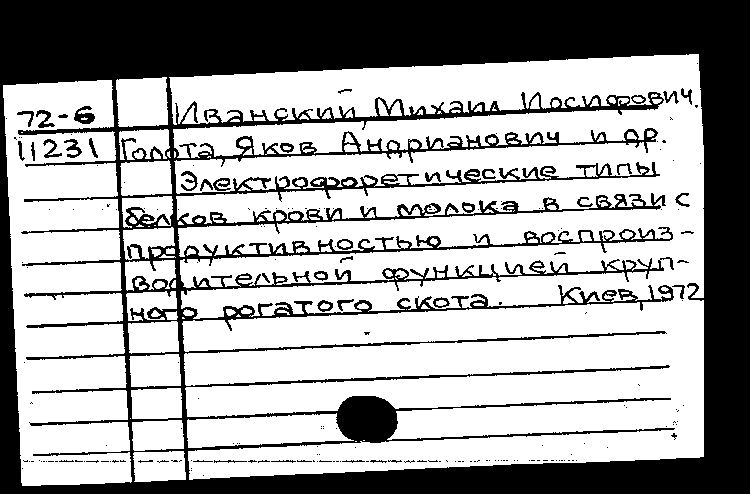 72-6 Иванский, Михаил Иосифович.
11231 Голота, Яков Андрианович и др.
Электрофоретические типы
белков крови и молока в связи с
продуктивностью и воспроиз-
водительной функцией круп-
ного рогатого скота. Киев, 1972